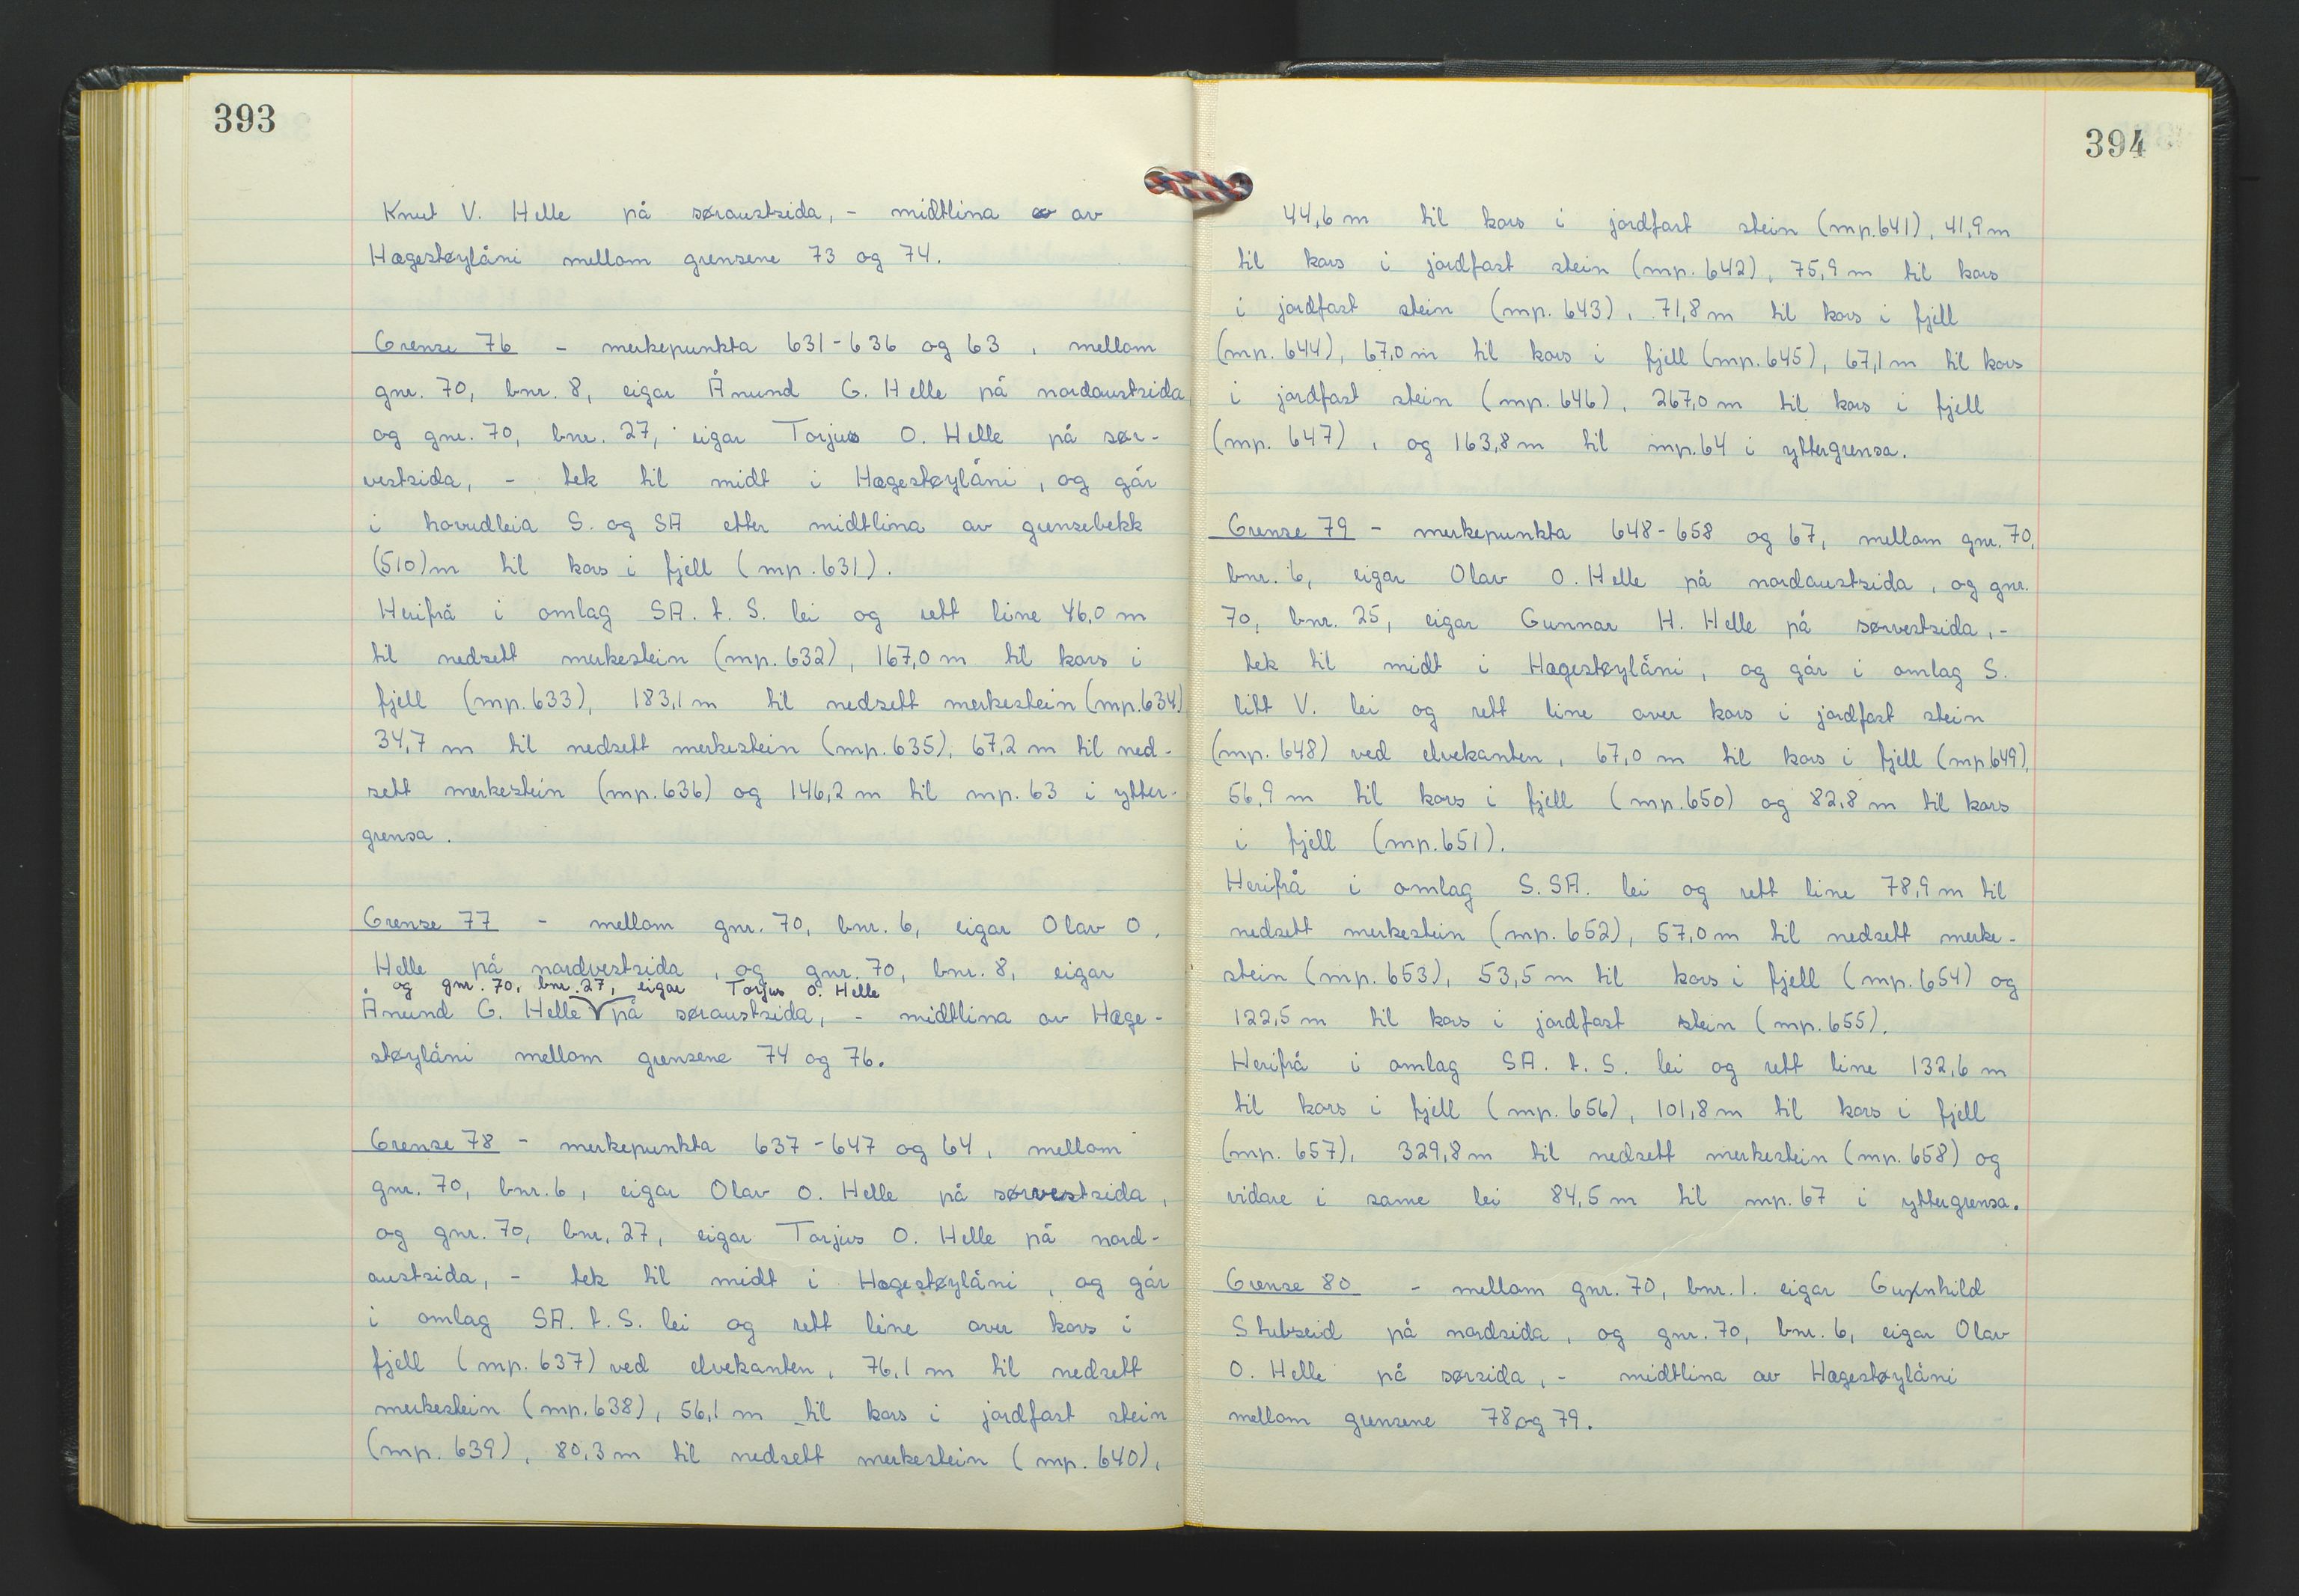 393
Knut V. Helle på søraustsida, - midtlina av
Hægestøylåni mellom grensene 73 og 74.
Grense 76 - merkepunkta 631-636 og 63, mellom
gnr. 70, bnr. 8, eigar Ånund G. Helle på nordaustsida,
og gnr. 70, bnr. 27, eigar Torjus O. Helle på sør-
vestsida, - tek til midt i Hægestøylåni, og går
i hovudleia S. og SA etter midtlina av grensebekk
(510)m til kors i fjell (mp.631).
Herifrå i omlag SA. t. S. lei og rett line 46,0 m
til nedsett merkestein (mp.632), 167,0 m til kors i
fjell (mp.633), 183,1 m til nedsett merkestein (mp.634)
34,7 m til nedsett merkestein (mp.635), 67,2 m til ned-
sett merkestein (mp.636) og 146,2 m til mp. 63 i ytter-
grensa.
Grense 77 - mellom gnr. 70, bnr. 6, eigar Olav O.
Helle på nordvestsida, og gnr. 70, bnr. 8, eigar
og gnr. 70, bnr. 27, eigar Torjus O. Helle
Ånund G. Helle på søraustsida, - midtlina av Hæge-
støylåni mellom grensene 74 og 76.
Grense 78 - merkepunkta 637-647 og 64, mellom
gnr. 70, bnr. 6, eigar Olav O. Helle på sørvestsida,
og gnr. 70, bnr. 27, eigar Torjus O. Helle på nord-
austsida, - tek til midt i Hægestøylåni, og går
i omlag SA. t. S. lei og rett line over kors i
fjell (mp. 637) ved elvekanten, 76,1 m til nedsett
merkestein (mp. 638), 56,1 m til kors i jordfast stein
(mp. 639), 80,3 m til nedsett merkestein (mp. 640),
394
44,6 m til kors i jordfast stein (mp.641), 41,9 m
til kors i jordfast stein (mp. 642), 75,9 m til kors
i jordfast stein (mp. 643), 71,8 m til kors i fjell
(mp. 644), 67,0 m til kors i fjell (mp. 645), 67,1 m til kors
i jordfast stein (mp. 646), 267,0 m til kors i fjell
(mp. 647), og 163,8 m til mp. 64 i yttergrensa.
Grense 79 - merkepunkta 648-658 og 67, mellom gnr. 70,
bnr. 6, eigar Olav O. Helle på nordaustsida, og gnr.
70, bnr. 25, eigar Gunnar H. Helle på sørvestsida, -
tek til midt i Hægestøylåni, og går i omlag S.
litt V. lei og rett line over kors i jordfast stein
(mp. 648) ved elvekanten, 67,0 m til kors i fjell (mp 649),
56,9 m til kors i fjell (mp. 650) og 82,8 m til kors
i fjell (mp. 651).
Herifrå i omlag S. SA. lei og rett line 78,9 m til
nedsett merkestein (mp. 652), 57,0 m til nedsett merke-
stein (mp. 653), 53,5 m til kors i fjell (mp. 654) og
122,5 m til kors i jordfast stein (mp. 655).
Herifrå i omlag SA. t. S. lei og rett line 132,6 m
til kors i fjell (mp. 656), 101,8 m til kors i fjell
(mp. 657), 329,8 m til nedsett merkestein (mp. 658) og
vidare i same lei 84,5 m til mp. 67 i yttergrensa.
Grense 80 - mellom gnr. 70, bnr. 1. eigar Gunhild
Stubseid på nordsida, og gnr. 70, bnr. 6, eigar Olav
O. Helle på sørsida, - midtlina av Hægestøylåni
mellom grensene 78 og 79.